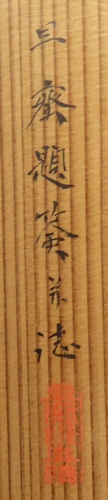 三齋題簽并誌